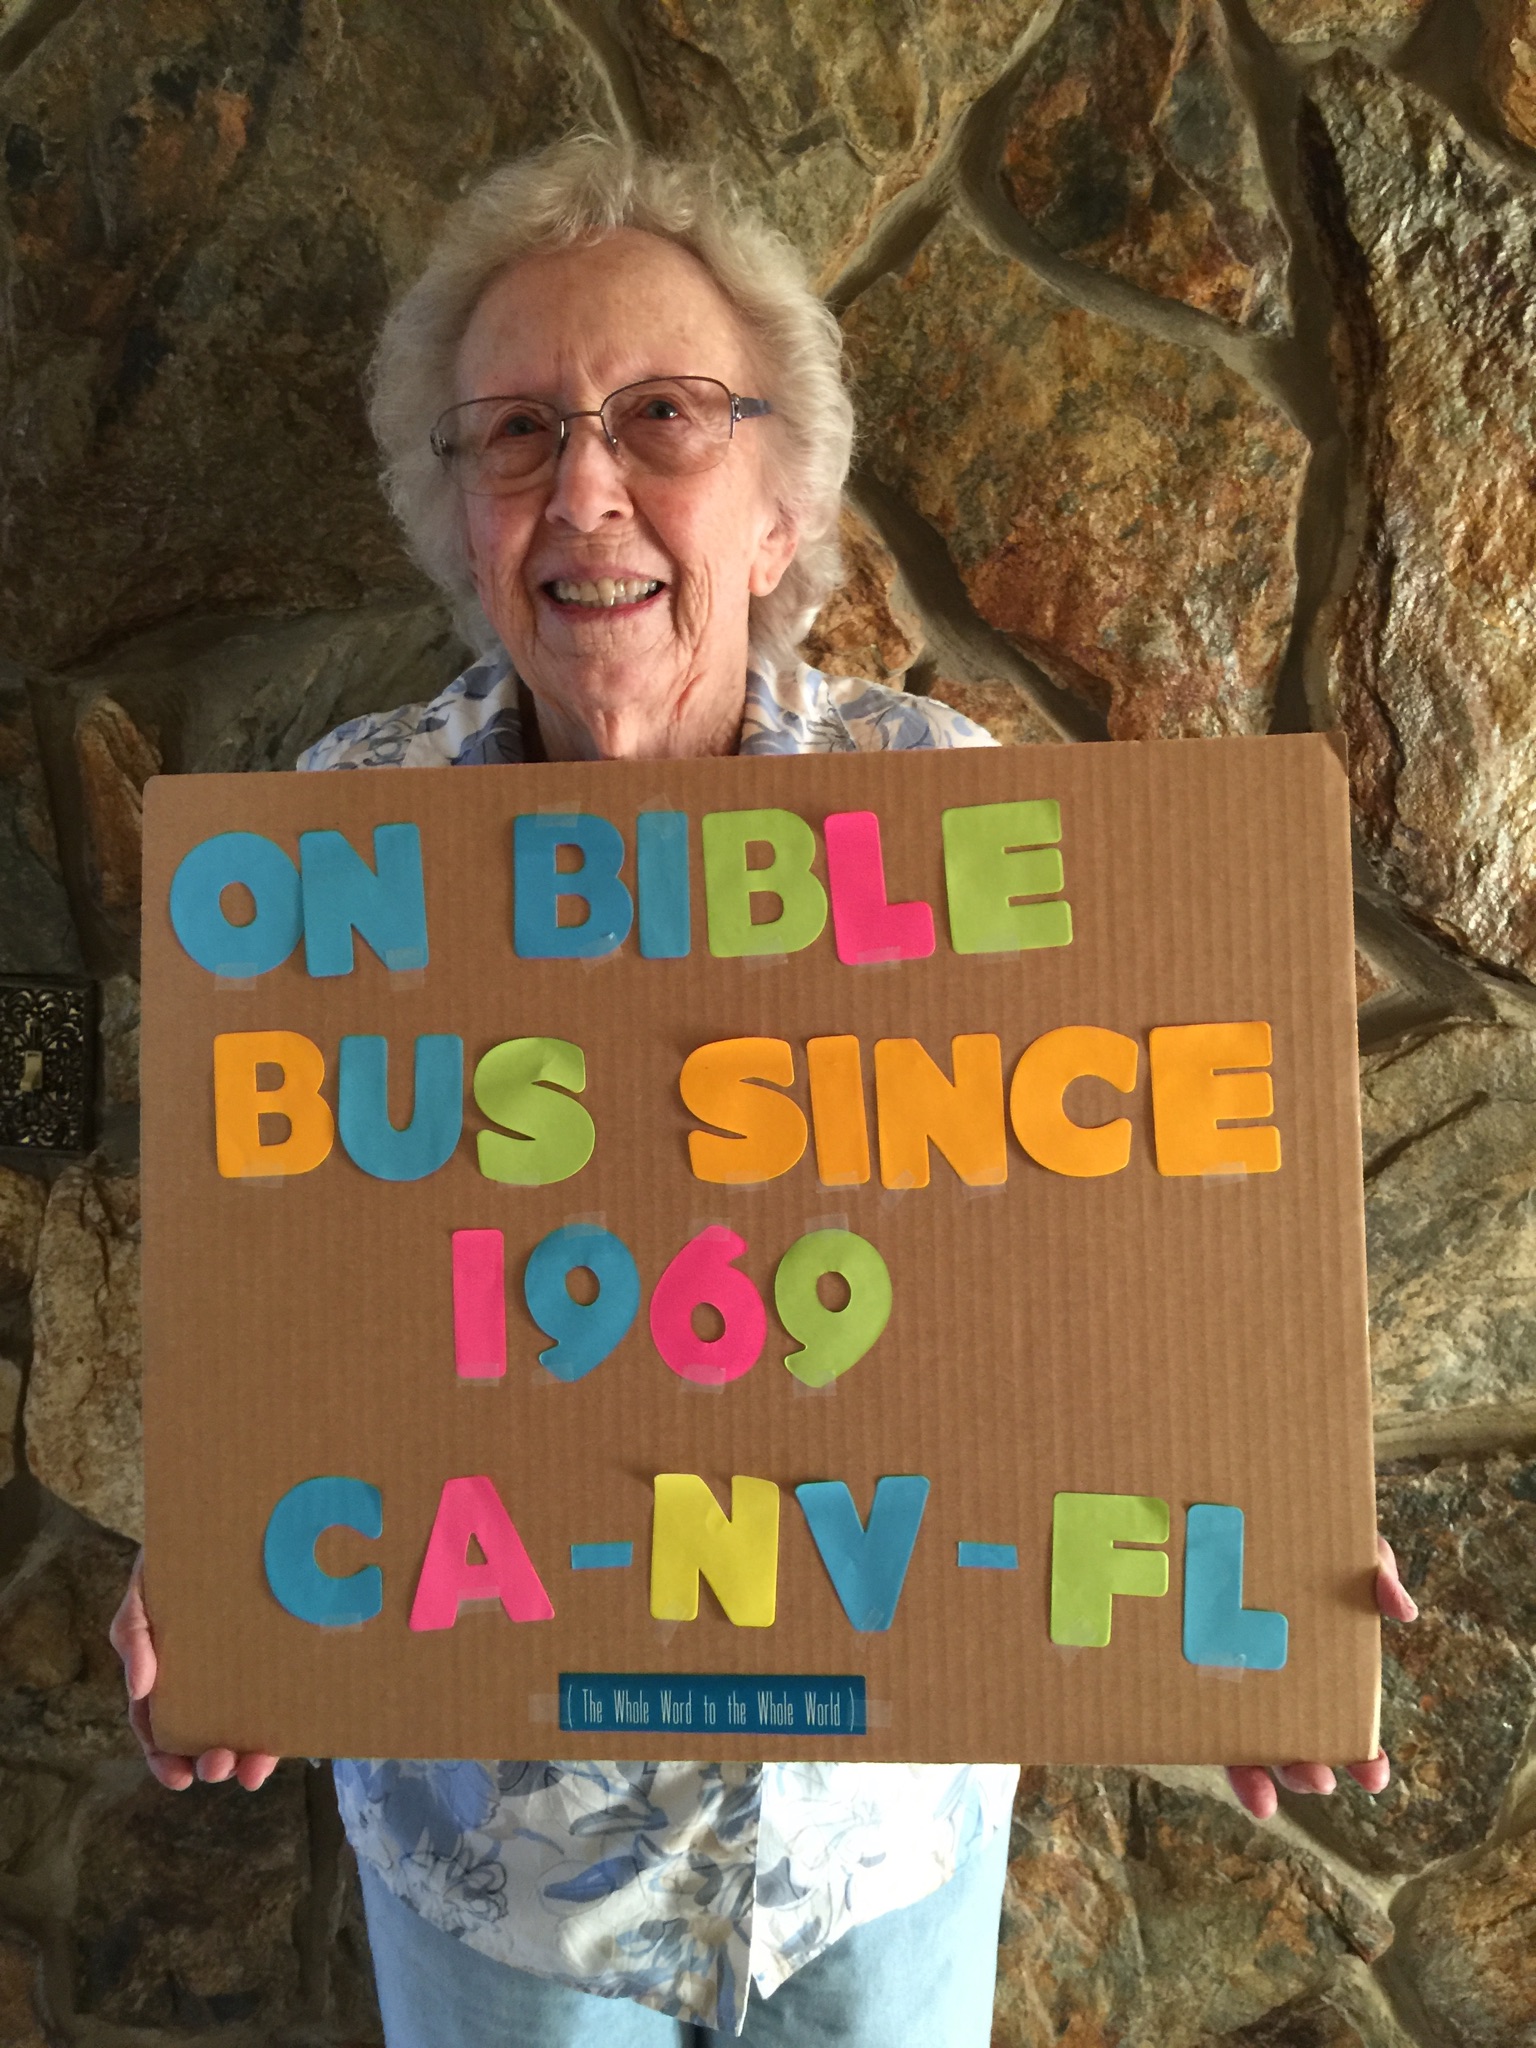 ON BIBLE
BUS SINCE
1969
CA-NV-FL
( The Whole Word to the Whole World )